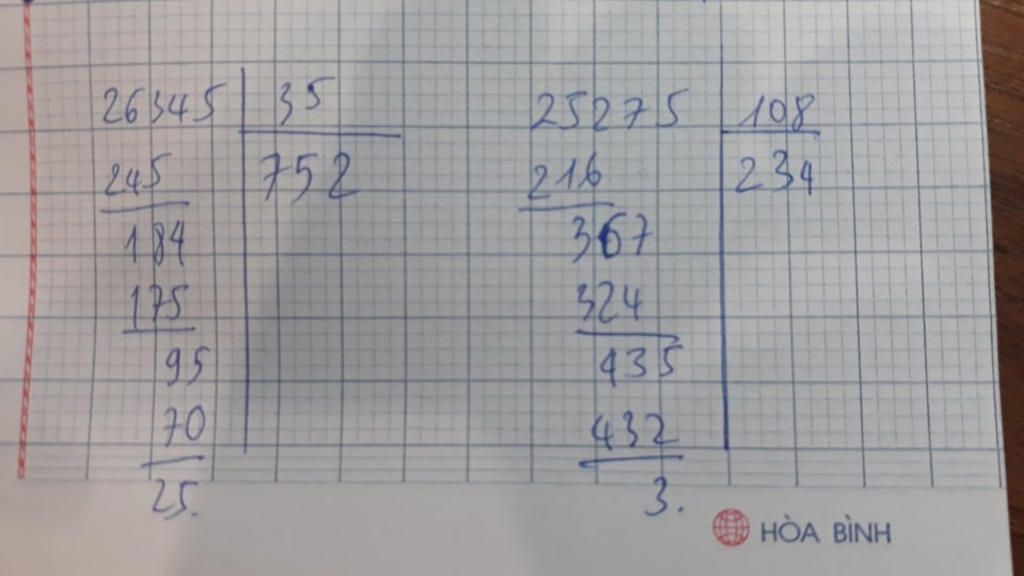 26345 35
245 752
184
175
95
70
25.
25275 108
216 234
367
324
435
432
3.
HÒA BÌNH